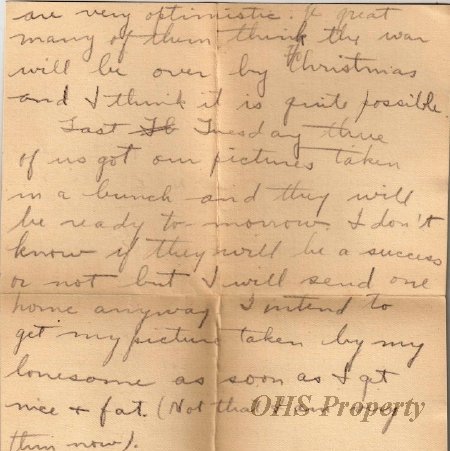 are very optimistic. A great
many of them think the war
will be over by Christmas
and I think it is quite possible.
Last Tuesday three
of us got our pictures taken
in a bunch and they will
be ready to-morrow. I don't
know if they will be a success
or not but I will send one
home anyway I intend to
get my picture taken by my
lonesome as soon as I get
nice + fat. (Not that I am
thin now).
OHS Property